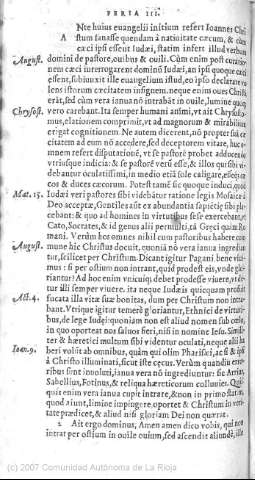 FERIA III.
Nte huius euangelii initium refert Ioannes Chri
A stum sanasse quendam à natiuitate cæcum, & cùm
cæci ipsi essent Iudæi, statim infert illud verbum
August. domini de pastore, ouibus & ouili. Cùm enim post curationem
nem cæci interrogarent dominũ Iudæi, an ipsi quoque cæci
essent, subiunxit ille euangelium istud,
lens istorum cæcitatem insignem. neque enim oues Christi
erãt, sed cùm vera ianua nõ intrabãt in ouile, lumine quoque
Chrysost. vero carebant. Ita semper humani animi, vt ait Chrysosto-
mus, elationem comprimit, vt ad magnorum & mirabilium
erigat cognitionem. Ne autem dicerent, nõ propter
citatem ad eum nõ accedere, sed deceptorem vitare, huc
nem refert disputationẽ, vt se pastorẽ probet addu
virũsque indicia: & se pastorẽ verũ esse, & illos qui sibi vi-
debantur oculatissimi, in medio etiã sole caligare, esseq; cæ-
cos & duces cæcorum. Potest tamẽ sic quoque induci, quòd
Mat. 15. Iudæi veri pastores sibi videbãtur ratione legis Mosaicæ à
Deo acceptæ, Gentiles aũt ex abundantia sapiẽtię sibi pla-
cebant: & quo ad homines in virtutibus se se exercebant, vt
Cato, Socrates, & id genus alii permulti, tã Græci quàm Ro-
mani. Verùm hos omnes nihil cum pastoribus habere com-
August. mune hic Christus docuit, quoniã nõ vera ianua ingrediũ-
tur, scilicet per Christum. Dicant igitur Pagani bene viui-
mus: si per ostium non intrant, quid prodest eis, vnde glo-
riantur? Ad hoc enim vnicuiq; debet prodesse viuere, vt de-
tur illi semper viuere. ita neque Iudæis quicquam profuit
Act. 4. fucata illa vitæ suæ bonitas, dum per Christum non intra-
bant. Vtrique igitur temerè gloriantur, Ethnici de virtuti-
bus, de lege Iudæi: quoniam non est aliud nomen sub cœlo,
in quo oporteat nos saluos fieri, nisi in nomine Iesu. Similiter
ter & hæretici multùm sibi videntur oculati, neque alii ha
Ioan. 9. beri volũt ab omnibus, quàm qui olim Pharisei, ac si & ipsi
à Christo illuminati, sicut iste cęcus. Verùm quandiu erro-
ribus sunt inuoluti, ianua vera nõ ingrediuntur: sic Arrius,
Sabellius, Fotinus, & reliqua hæreticorum colluuies. Qui-
quasi enim vera ianua cupit intrare, & non in primo
quod aiunt, limine impingere, oportet & Christum in veri-
tate prædicet, & aliud nisi gloriam Dei non quærat.
2 Ait ergo dominus, Amen amen dico vobis, qui non
intrat per ostium in ouile ouium, sed ascendit aliundè, ille
(c) 2007 Comunidad Autónoma de La Rioja